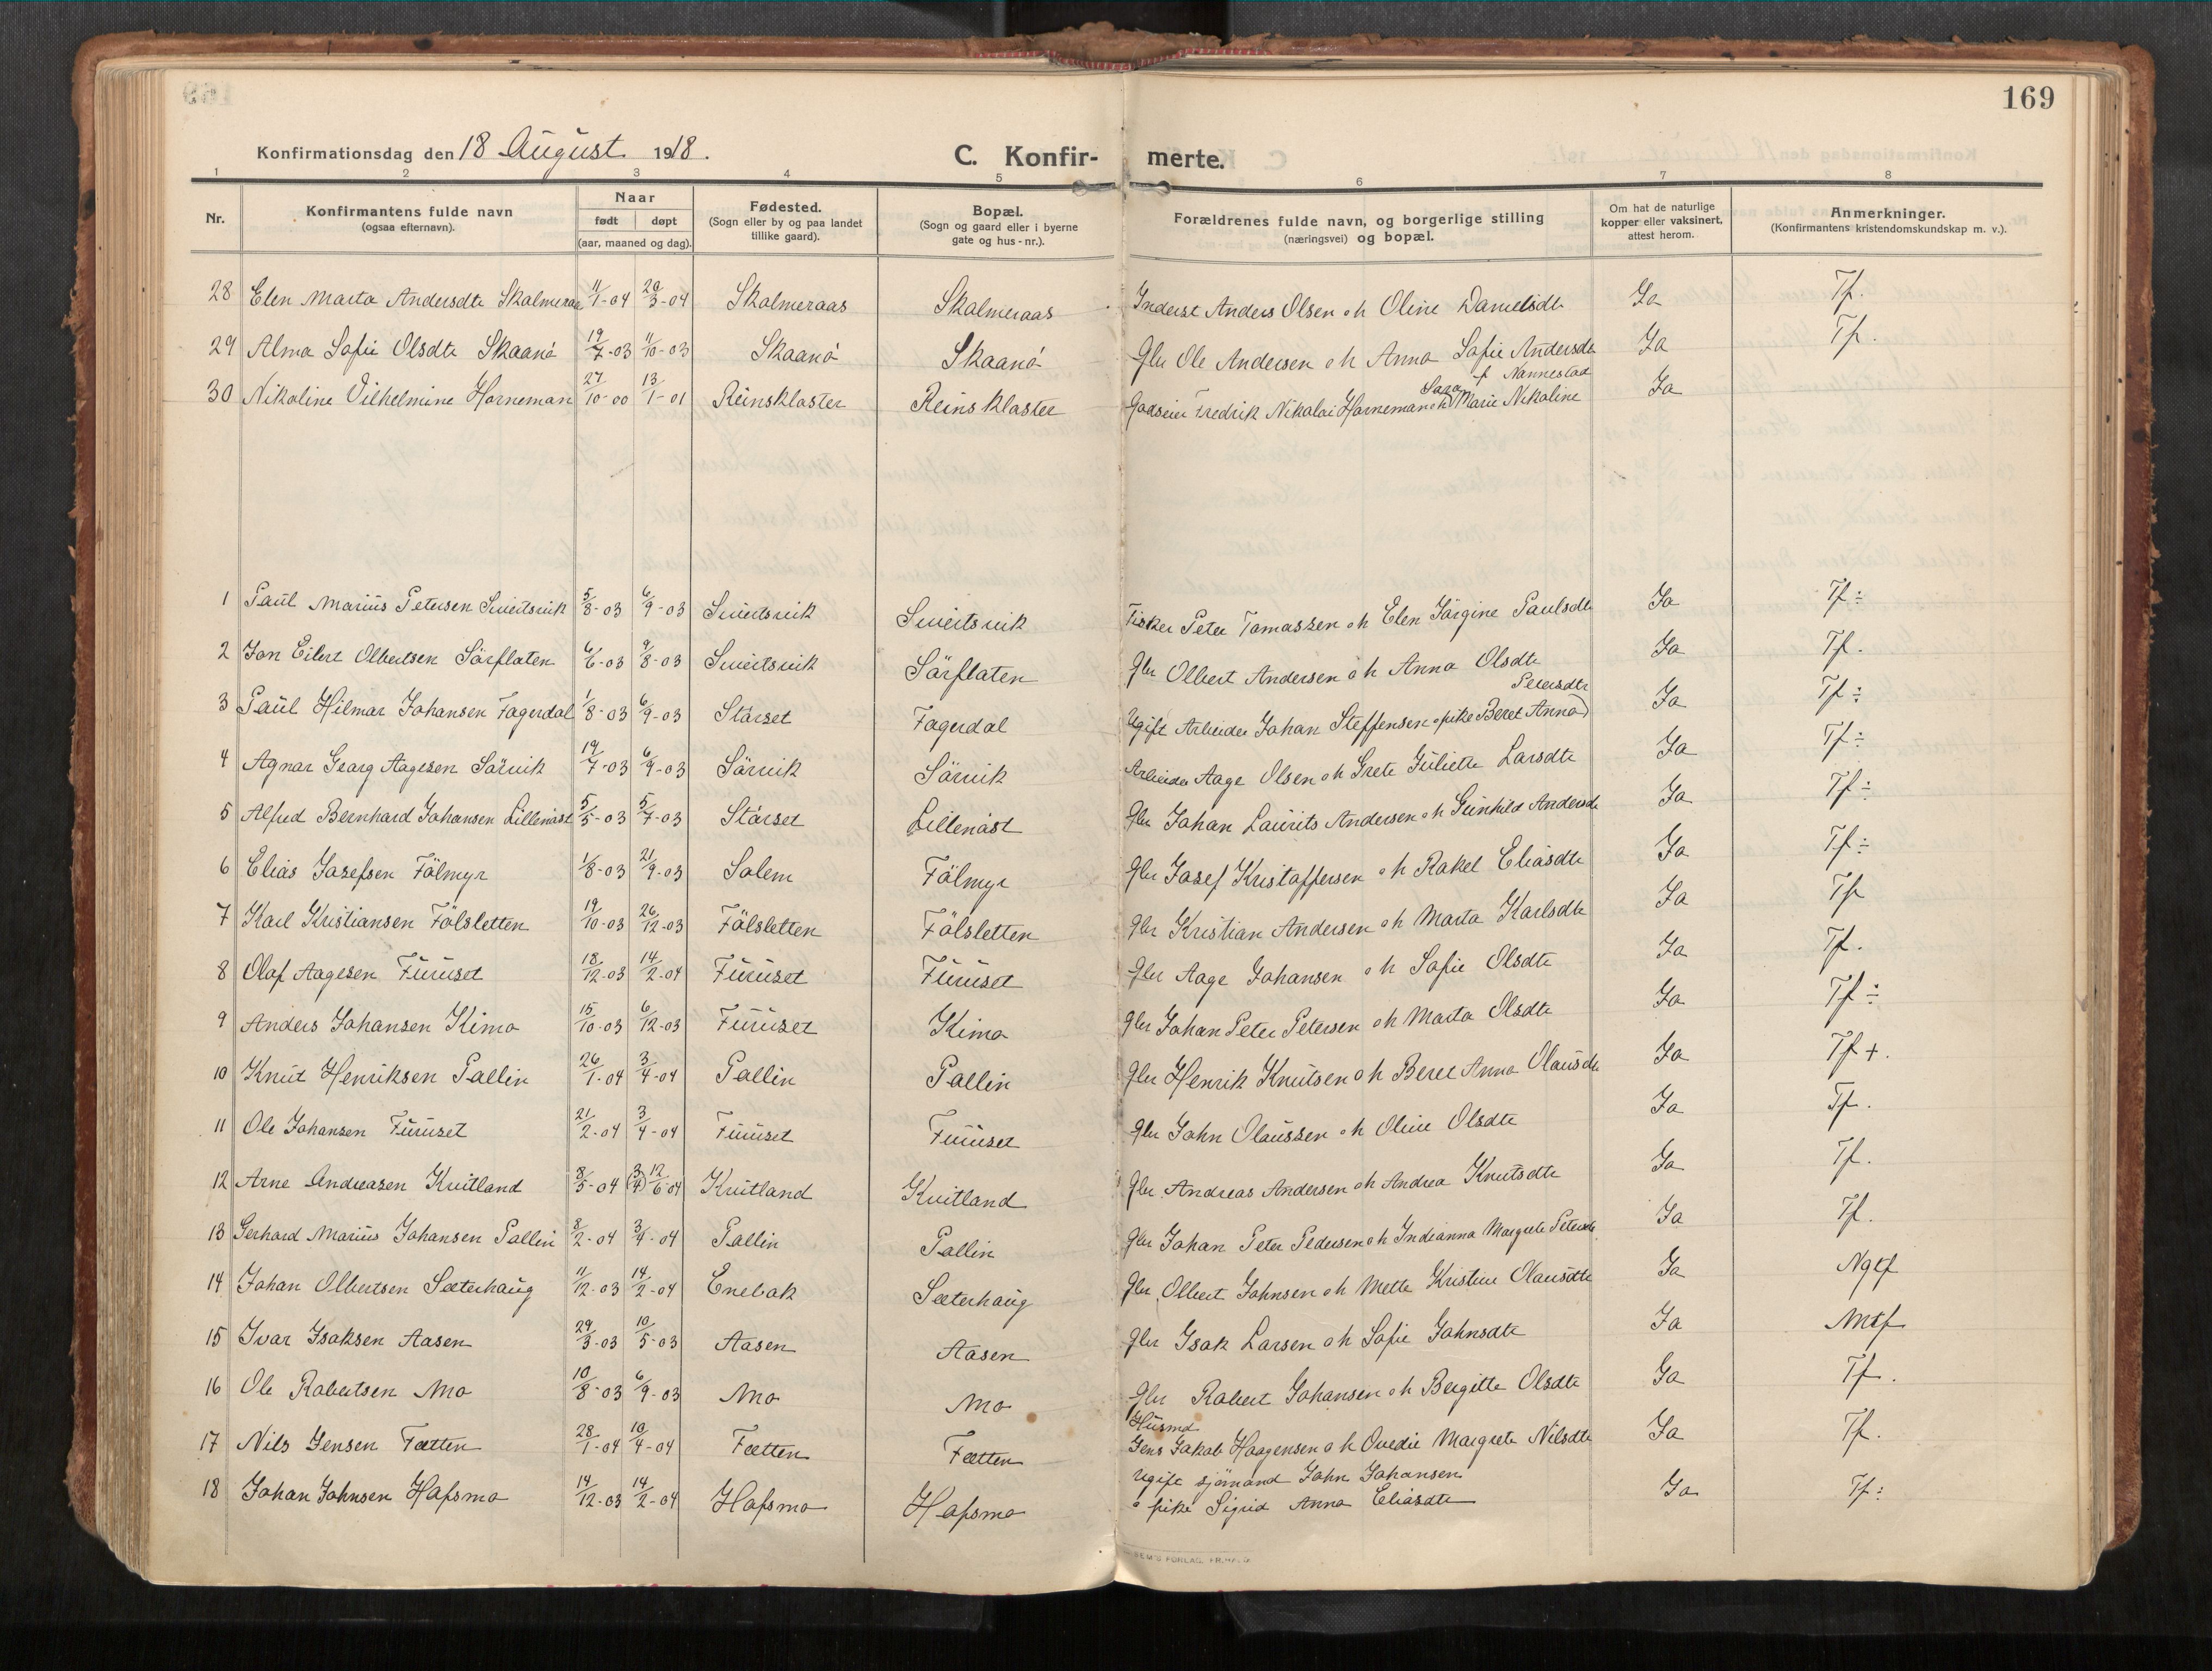 169
Konfirmationsdag den 18 August 1918.
C. Konfir- merte.
1 2 3 4 5 6 7 8
Nr.
Konfirmantens fulde navn
(ogsaa efternavn).
Naar
født døpt
(aar, maaned og dag).
Fødested.
(Sogn eller by og paa landet
tillike gaard).
Bopæl.
(Sogn og gaard eller i byerne
gate og hus-nr.).
Forældrenes fulde navn, og borgerlige stilling
(næringsvei) og bopæl.
Om hat de naturlige
kopper eller vaksinert,
attest herom.
Anmerkninger.
(Konfirmantens kristendomskundskap m. v.).
28 Elen Marta Andersdtr Skalmeraas 11/1-04 20/3-04 Skalmeraas Skalmeraas Inderst Anders Olsen o h Oline Danielsdtr Ja Tf.
29 Alma Sofie Olsdtr Skaanö 19/7-03 4/10-03 Skaanö Skaanö Gbr Ole Andersen o h Anna Sofie Andersdtr Ja Tf.
30 Nikoline Vilhelmine Horneman 27/10-00 13/1-01 Reinskloster Reinskloster Godseier Fredrik Nikolai Horneman o h Sara Marie Nikoline f Nannestad Ja
1 Paul Marius Petersen Sveitsvik 5/8-03 6/9-03 Sveitsvik Sveitsvik Fisker Peter Tomassen o h Elen Jörgine Paulsdtr Ja Tf÷
2 Jon Eilert Olbertsen Sörfloten 6/6-03 9/8-03 Sveitsvik Sörfloten Gbr Olbert Andersen o h Anna Olsdtr Ja Tf.
3 Paul Hilmar Johansen Fagerdal 1/8-03 6/9-03 Störset Fagerdal Ugift Arbeider Johan Steffensen o pike Beret Anna Petersdtr Ja Tf÷
4 Agnar Georg Aagesen Sörvik 19/7-03 6/9-03 Sörvik Sörvik Arbeider Aage Olsen o h Grete Juliette Larsdtr Ja Tf÷
5 Alfred Bernhard Johansen Lillenöst 5/5-03 5/7-03 Störset Lillenöst Gbr Johan Laurits Andersen o h Gunhild Andersdtr Ja Tf÷
6 Elias Josefsen Fölmyr 1/8-03 21/9-03 Solem Fölmyr Gbr Josef Kristoffersen o h Rakel Eliasdtr Ja Tf÷
7 Karl Kristiansen Fölsletten 19/10-03 26/12-03 Fölsletten Fölsletten Gbr Kristian Andersen o h Marta Karlsdtr Ja Tf
8 Olaf Aagesen Furuset 18/12-03 14/2-04 Furuset Furuset Gbr Aage Johansen o h Sofie Olsdtr Ja Tf.
9 Anders Johansen Kimo 15/10-03 6/12-03 Furuset Kimo Gbr Johan Peter Petersen o h Marta Olsdtr Ja Tf÷
10 Knut Henriksen Pallin 26/1-04 3/4-04 Pallin Pallin Gbr Henrik Knutsen o h Beret Anna Olausdtr Ja Tf+.
11 Ole Johansen Furuset 21/2-04 3/4-04 Furuset Furuset Gbr John Olaussen o h Oline Olsdtr Ja Tf.
12 Arne Andreasen Kvitland 8/3-04 (3/4) 12/6-04 Kvitland Kvitland Gbr Andreas Andersen o h Andrea Knutsdtr Ja Tf.
13 Gerhard Marius Johansen Pallin 8/2-04 3/4-04 Pallin Pallin Gbr Johan Peter Pedersen o h Indianna Margrete Petersdtr Ja Tf.
14 Johan Olbertsen Sæterhaug 11/12-03 14/2-04 Enebak Sæterhaug Gbr Olbert Johnsen o h Mette Kristine Olausdtr Ja Ngtf
15 Ivar Isaksen Aasen 29/3-03 10/5-03 Aasen Aasen Gbr Isak Larsen o h Sofie Johnsdtr Ja Mtf
16 Ole Robertsen Mo 10/8-03 6/9-03 Mo Mo Gbr Robert Johansen o h Bergitte Olsdtr Ja Tf.
17 Nils Jensen Fætten 28/1-04 10/4-04 Fætten Fætten Husmd Jens Jakob Haagensen o h Ovedie Margrete Nilsdtr Ja Tf.
18 Johan Johnsen Hafsmo 14/12-03 14/2-04 Hafsmo Hafsmo Ugift sjömand John Johansen
o pike Sigrid Anna Eliasdtr Ja Tf÷